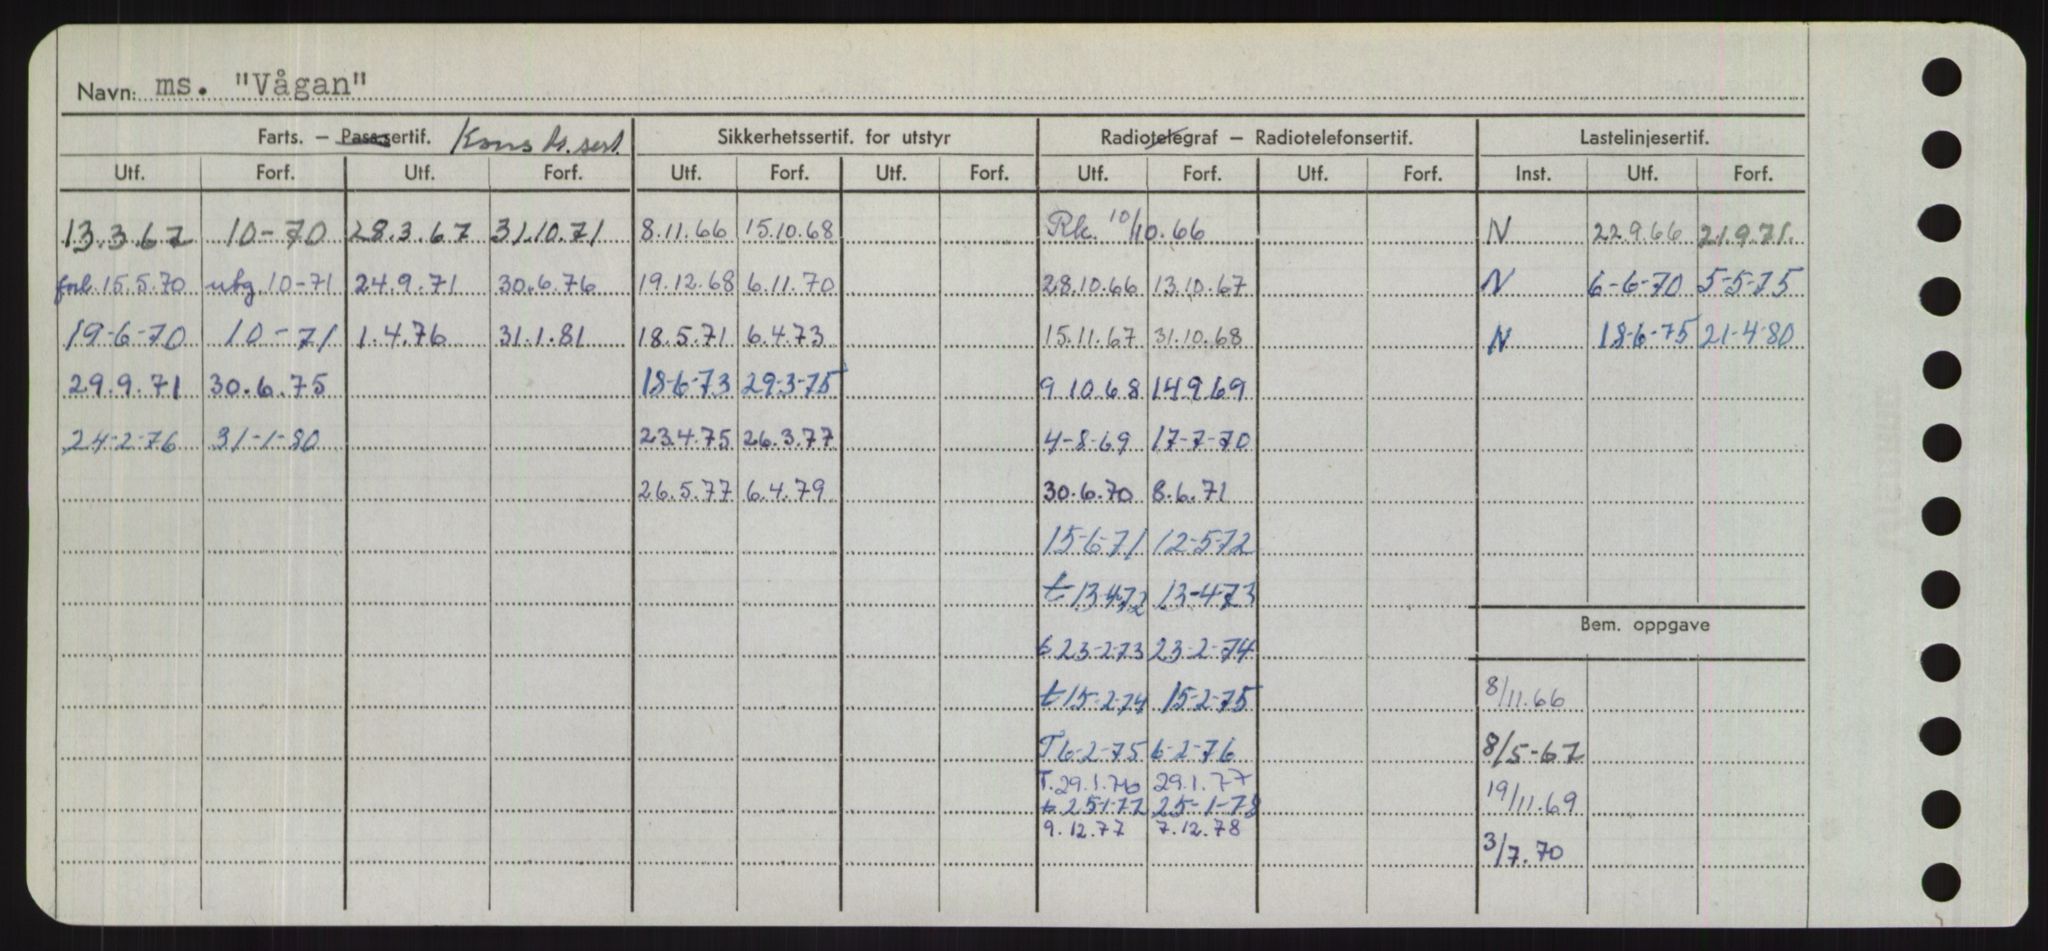 Navn: ms. "Vågan"
Farts. – Passsertif. Konst.sert. Sikkerhetssertif. for utstyr Radiotelegraf – Radiotelefonsertif. Lastelinjesertif.
Utf. Forf. Utf. Forf. Utf. Forf. Utf. Forf. Utf. Forf. Utf. Forf. Inst. Utf. Forf.
13.3.67 10-70 28.3.67 31.10.71 8.11.66 15.10.68 Rk. 10/10.66 N 22.9.66 21.9.71.
forl. 15.5.70 utg 10-71 24.9.71 30.6.76 19.12.68 6.11.70 28.10.66 13.10.67 N 6-6-70 5-5-75
19-6-70 10-71 1.4.76 31.1.81 18.5.71 6.4.73 15.11.67 31.10.68 N 18-6-75 21-4-80
29.9.71 30.6.75 18-6-73 29-3-75 9.10.68 14.9.69
24-2-76 31-1-80 23.4.75 26.3.77 4-8-69 17-7-70
26.5.77 6.4.79 30.6.70 8.6.71
15-6-71 12-5-72
t 13-4-72 13-4-73
Bem. oppgave
t 23-2-73 23-2-74
t 15-2-74 15-2-75 8/11.66
T 6-2-75 6-2-76 8/5-67
T. 29.1.76 29.1.77
t. 25-1-77 25-1-78 19/11.69
9.12.77 7.12.78
3/7.70